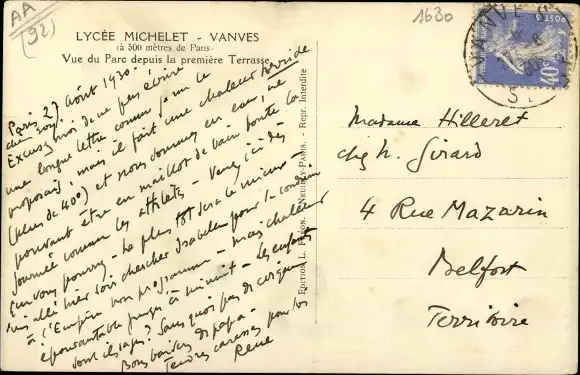 AA
(92)
1630
LYCÉE MICHELET - VANVES
(à 500 mètres de Paris)
Vue du Parc depuis la première Terrasse
POSTES
40c
VANVES
Paris 27 Août 1930
Excusez moi de ne pas écrire
une longue lettre comme je me le
proposais, mais il fait une chaleur torride
(plus de 40°) et nous donnons en cas, ne
pouvant être en maillot de bain toute la
journée comme les athlètes - Venez ici dès
que vous pourrez - Le plus tôt sera le mieux -
suis allé hier soir chercher Isabelle pour la conduire
à l'Empire bon programme - mais chaleur
épouvantable jusqu'à minuit - Les enfants
sont ils sages? Sans quoi pas de
Bons baisers de papa -
Tendres caresses pour toi
René
EDITION L. NEUILLY-PARIS. - Repr. Interdite
Madame Hilleret
chez h. Girard
4 Rue Mazarin
Belfort
Territoire